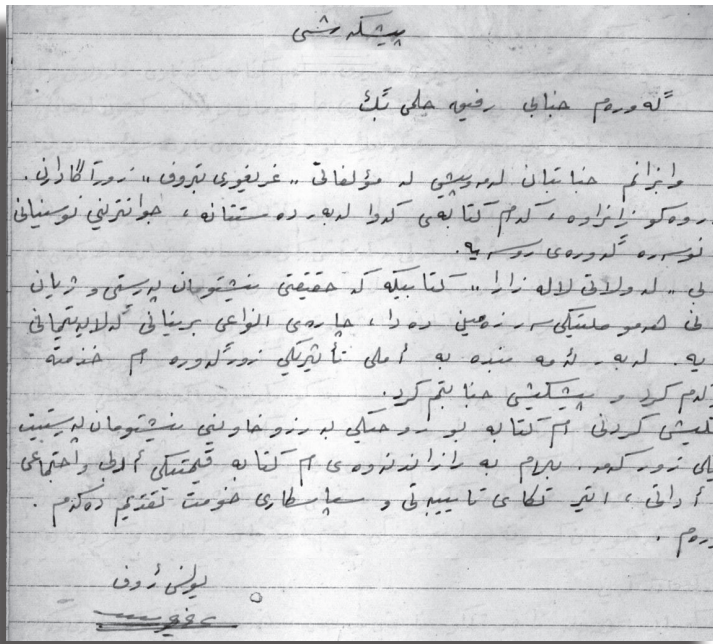 پیشکەشی
گەورەم جنابی رفیق حلمی بگ
وابزانم جنابتان لەمەوپیش لە مؤلفاتی ,, غریغوری پتروف ,, زۆر ئاگادارن.
روەکو زانراوە، ئەم کتابەی کەوا لەبەر دەستتانە، جوانترینی نوسینانی
نوسەرە گەورەی روسیە.
لی ,, لە ولاتی لالە زارا ,, کتابیکە کە حقیقتی نیشتومان پەرستی و ژیان
نی هەموو ملتیکی سەر زەمینی دەدا، چارەی انواعی برینانی
یە. لەبەر ئەمە بندە بە أملی تأثیریکی زۆر گەورە ام خدمتە
کرد و پیشکیشی جنابتم کرد.
کیش کردنی ام کتابە بو روحیکی بەرزو خاوینی نیشتومان پەرستیت
زور کەمە. بەلام بە رازاندنەوەی ام کتابە قیمتیکی أدبی و اجتماعی
أداتی، ایتر تکای تایبەتی و سپاسکاری خومت تقدیم دەکەم.
ورەم.
یونس رؤف